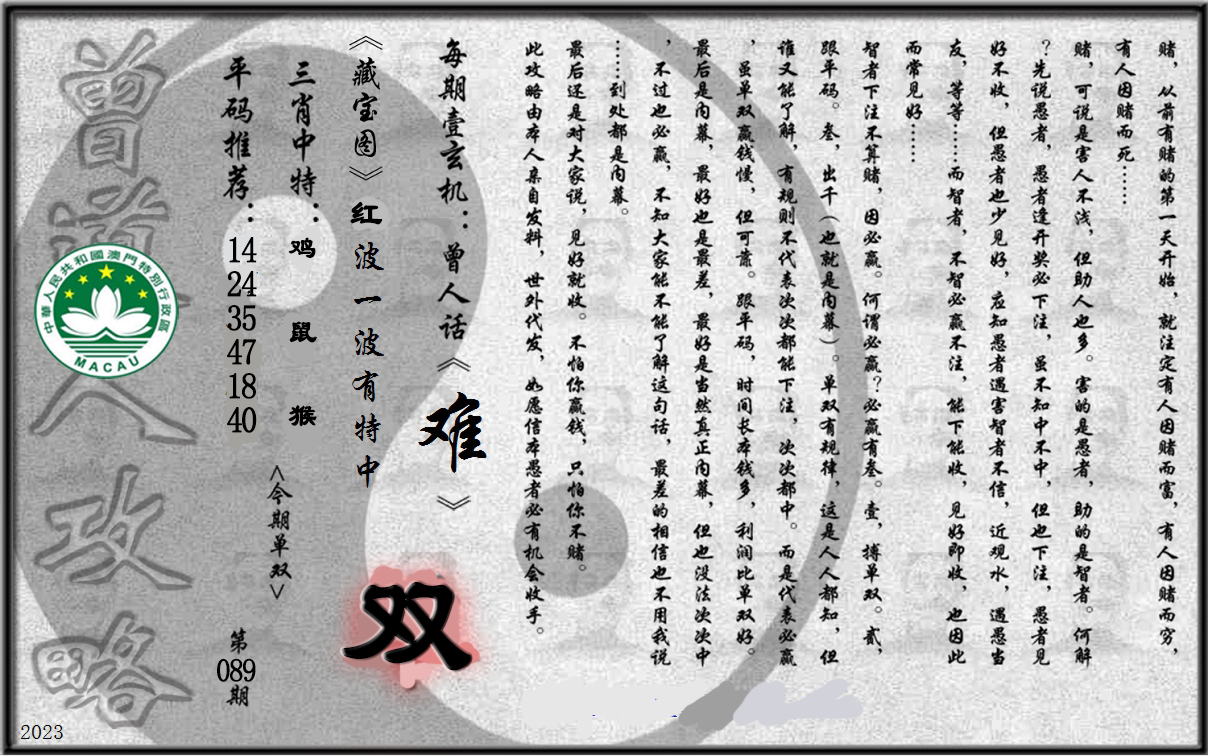 赌，从前有赌的第一天开始，就注定有人因赌而富，有人因赌而穷，
有人因赌而死……
赌，可说是害人不浅，但助人也多。害的是愚者，助的是智者。何解
？先说愚者，愚者逢开奖必下注，虽不知中不中，但也下注，愚者见
好不收，但愚者也少见好，应知愚者遇害智者不信，近观水，遇愚当
友，等等……而智者，不智必赢不注，能下能收，见好即收，也因此
而常见好……
智者下注不算赌，因必赢。何谓必赢？必赢有叁。壹，搏单双。贰，
跟平码。叁，出千（也就是内幕）。单双有规律，这是人人都知，但
谁又能了解，有规则不代表次次都能下注，次次都中。而是代表必赢
，虽单双赢钱慢，但可靠。跟平码，时间长本钱多，利润比单双好。
最后是内幕，最好也是最差，最好是当然真正内幕，但也没法次次中
，不过也必赢，不知大家能不能了解这句话，最差的相信也不用我说
……到处都是内幕。
最后还是对大家说，见好就收。不怕你赢钱，只怕你不赌。
此攻略由本人亲自发料，世外代发，如愿信本愚者必有机会收手。
每期壹玄机：曾人话《难》
《藏宝图》红波一波有特中
双
三肖中特：鸡 鼠 猴
<今期单双>
平码推荐：
14
24
35
47
18
40
第
089
期
曾道人攻略
中華人民共和國澳門特別行政區
MACAU
2023